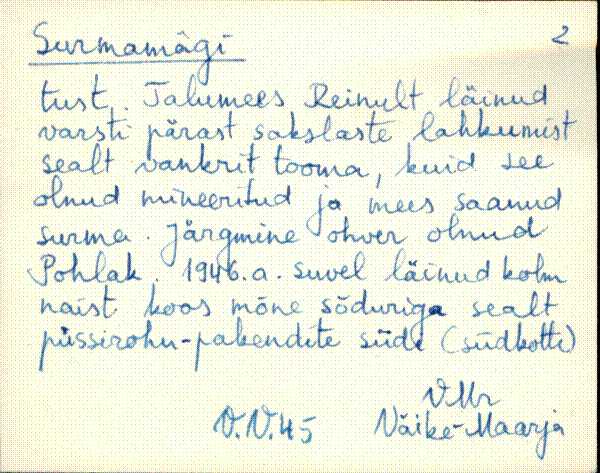 Surmamägi 2
tust. Talumees Reinult läinud
varsti pärast sakslaste lahkumist
sealt vankrit tooma, kuid see
olnud mineeritud ja mees saanud
surma. Järgmine ohver olnud
Pohlak. 1946.a. suvel läinud kolm
naist koos mõne sõduriga sealt
püssirohu-pakendite siidi (siidkotti)
VMr
V.V.45 Väike-Maarja